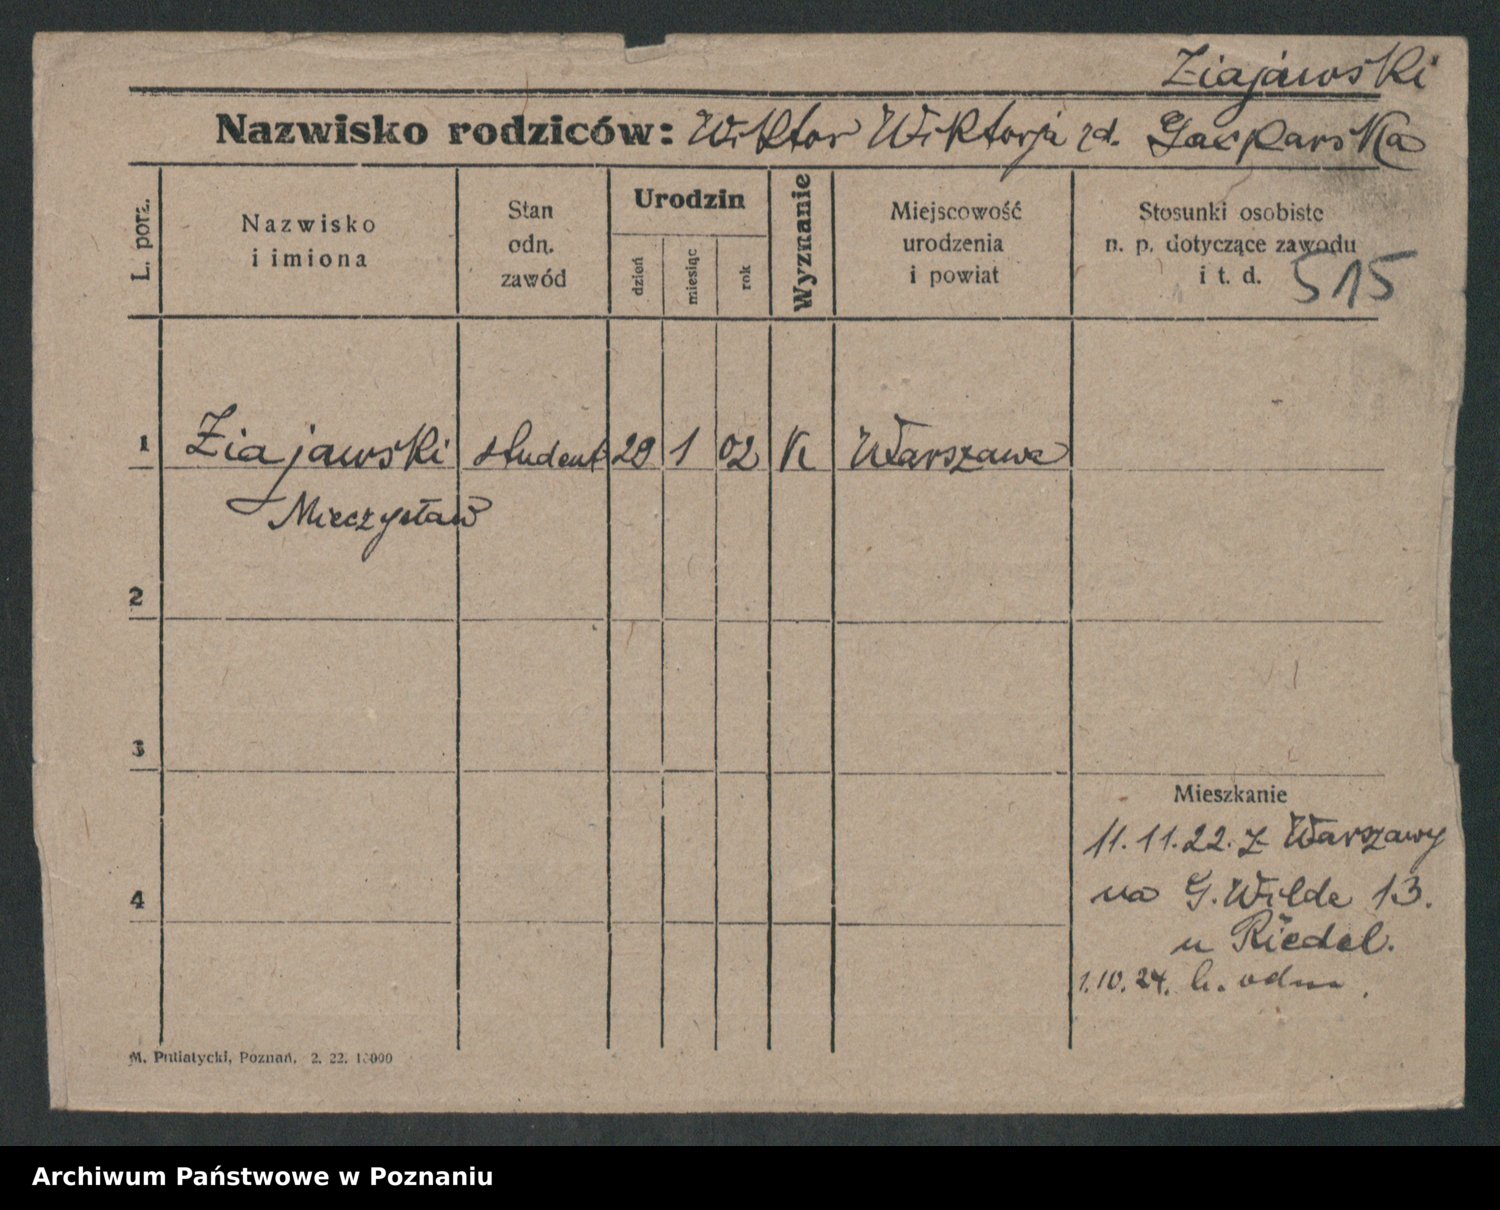 Ziajawski
Nazwisko rodziców: Wiktor Wiktorja zd. Gackarska
L. porz.
Nazwisko
i imiona
Stan
odn.
zawód
Urodzin
dzień
miesiąc
rok
Wyznanie
Miejscowość
urodzenia
i powiat
Stosunki osobiste
n. p. dotyczące zawodu
i t. d.
515
1 Ziajawski student 29 1 02 K Warszawa
Mieczysław
2
3
4
Mieszkanie
11.11.22. z Warszawy
na G. Wilde 13.
u Riedel.
1.10.24. b. odm.
M. Putiatycki, Poznań, 2. 22. 10000
Archiwum Państwowe w Poznaniu